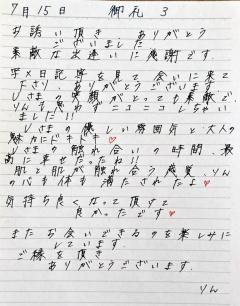 7月15日　御礼 3
お誘い頂き ありがとう
ございました
素敵な出逢いに感謝です。
写メ日記等を見て会いに来て
下さり、ありがとうございます
しさまの笑顔がとっても素敵で、
りんも思わずニコニコしちゃい
ました!!
しさまの優しい雰囲気と大人の
魅力にドキドキ♥
しさまと触れ合いの時間、最
高に幸せだったね!!
肌と肌が触れ合う感覚、りん
の心も体も満たされたよ♥
気持ち良くなって頂けて
良かったです♥
またお会いできるのを楽しみに
しています
ご縁を頂き
ありがとうございます。
りん